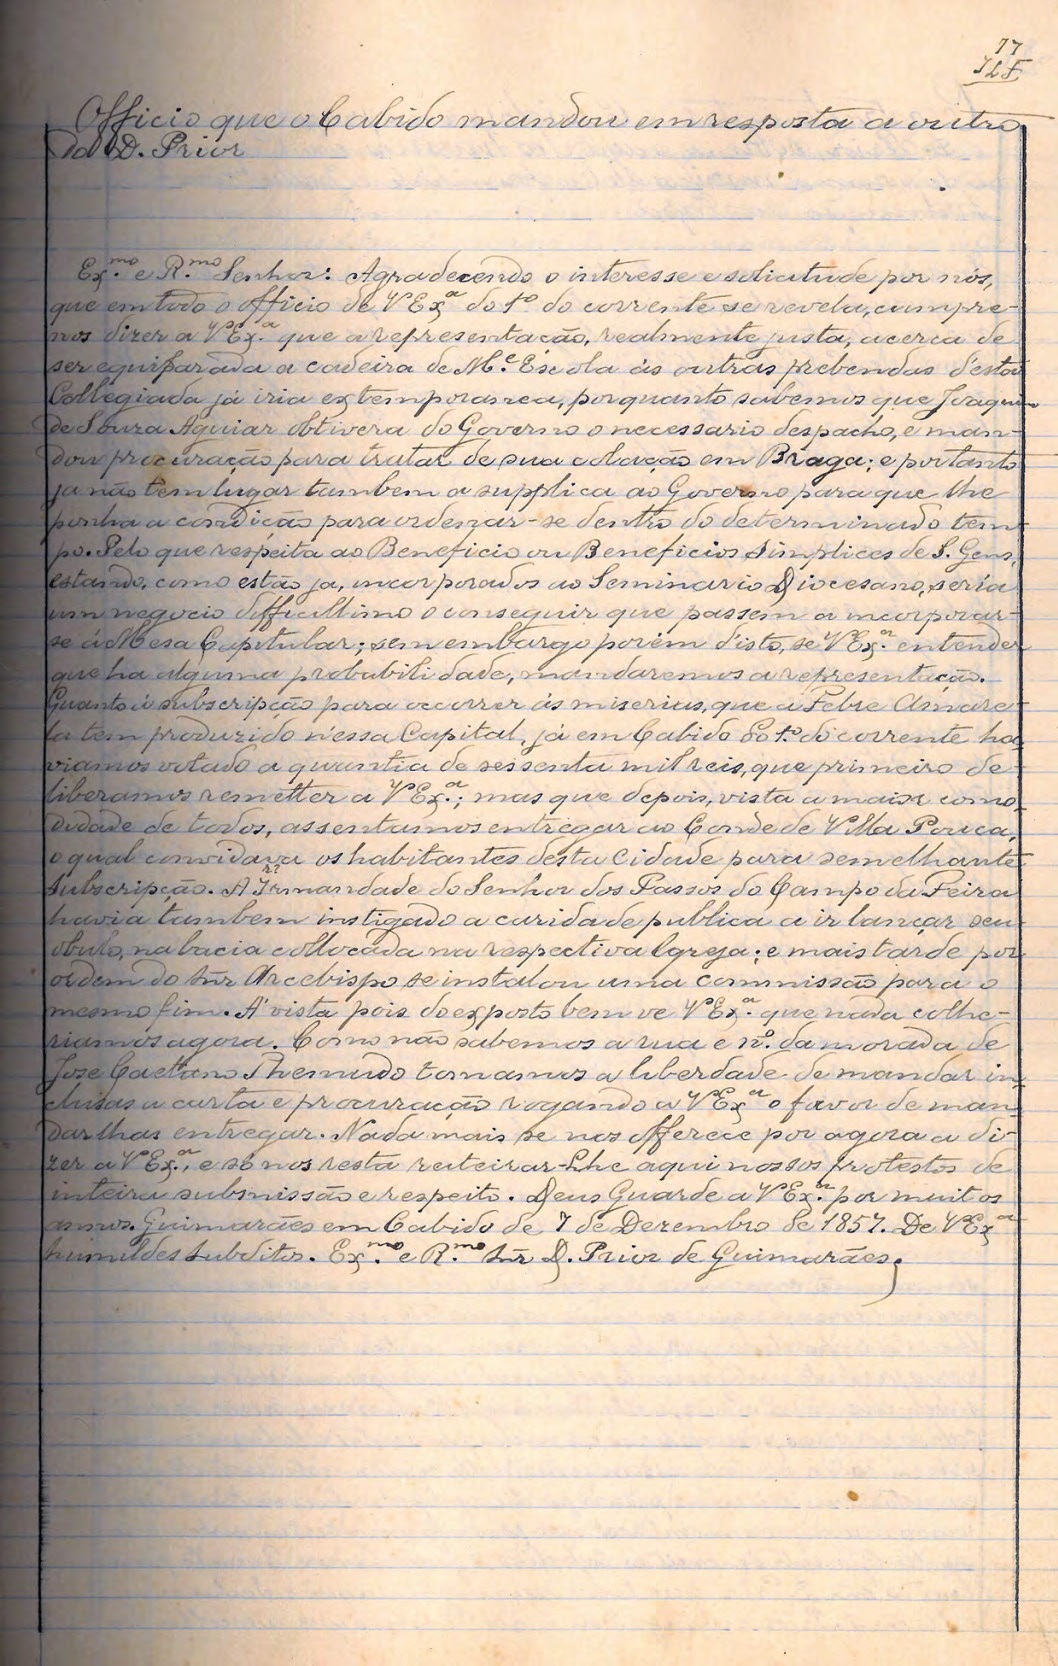 77
JLF
Officio que o Cabido mandou em resposta a outro
do D. Prior
Ex.mo e R.mo Senhor: Agradecendo o interesse e solicitude por nós,
que em todo o officio de VEx.a do 1º do corrente se revela, cumpre-
nos dizer a VEx.a que a representação, realmente justa, acerca de
ser equiparada a cadeira de M.e Escola ás outras prebendas d'esta
Collegiada já iria extemporanea, porquanto sabemos que Joaquim
de Souza Aguiar obtivera do Governo o necessario despacho, e man-
dou procuração para tratar de sua colação em Braga; e portanto
ja não tem lugar tambem a supplica ao Governo para que lhe
ponha a condição para ordenar-se dentro do determinado tem-
po. Pelo que respeita ao Beneficio ou Beneficios Simplices de S. Gens,
estando, como estão ja, incorporados ao Seminario Diocesano, seria
um negocio difficillimo o conseguir que passem a incorporar-
se á Mesa Capitular; sem embargo porém d'isto, se VEx.a entender
que ha alguma probabilidade, mandaremos a representação.
Quanto á subscripção para occorrer ás miserias, que a Febre Amare-
la tem produzido n'essa Capital, já em Cabido do 1.º do corrente ha-
viamos votado a quantia de sessenta mil reis, que primeiro de-
liberamos remetter a VEx.a; mas que depois, vista a maior como-
didade de todos, assentamos entregar ao Conde de Villa Pouca,
o qual convidara os habitantes desta Cidade para semelhante
subscripção. A Irmandade do Senhor dos Passos do Campo da Feira
havia tambem instigado a caridade publica a ir lançar seu
obulo, na bacia collocada na respectiva Igreja; e mais tarde por
ordem do Snr Arcebispo se instalou uma commissão para o
mesmo fim. A' vista pois do exposto bem ve VEx.a que nada colhe-
riamos agora. Como não sabemos a rua e nº. da morada de
Jose Caetano Themudo tomamos a liberdade de mandar in-
clusas a carta e procuração rogando a VEx.a o favor de man-
dar lhas entregar. Nada mais se nos offerece por agora a di-
zer a VEx.a, e só nos resta reiteirar-Lhe aqui nossos protestos de
inteira submissão e respeito. Deus Guarde a VEx.a por muitos
annos. Guimarães em Cabido de 7 de Dezembro de 1857. De VEx.a
humildes subditos. Ex.mo e R.mo Snr D. Prior de Guimarães.